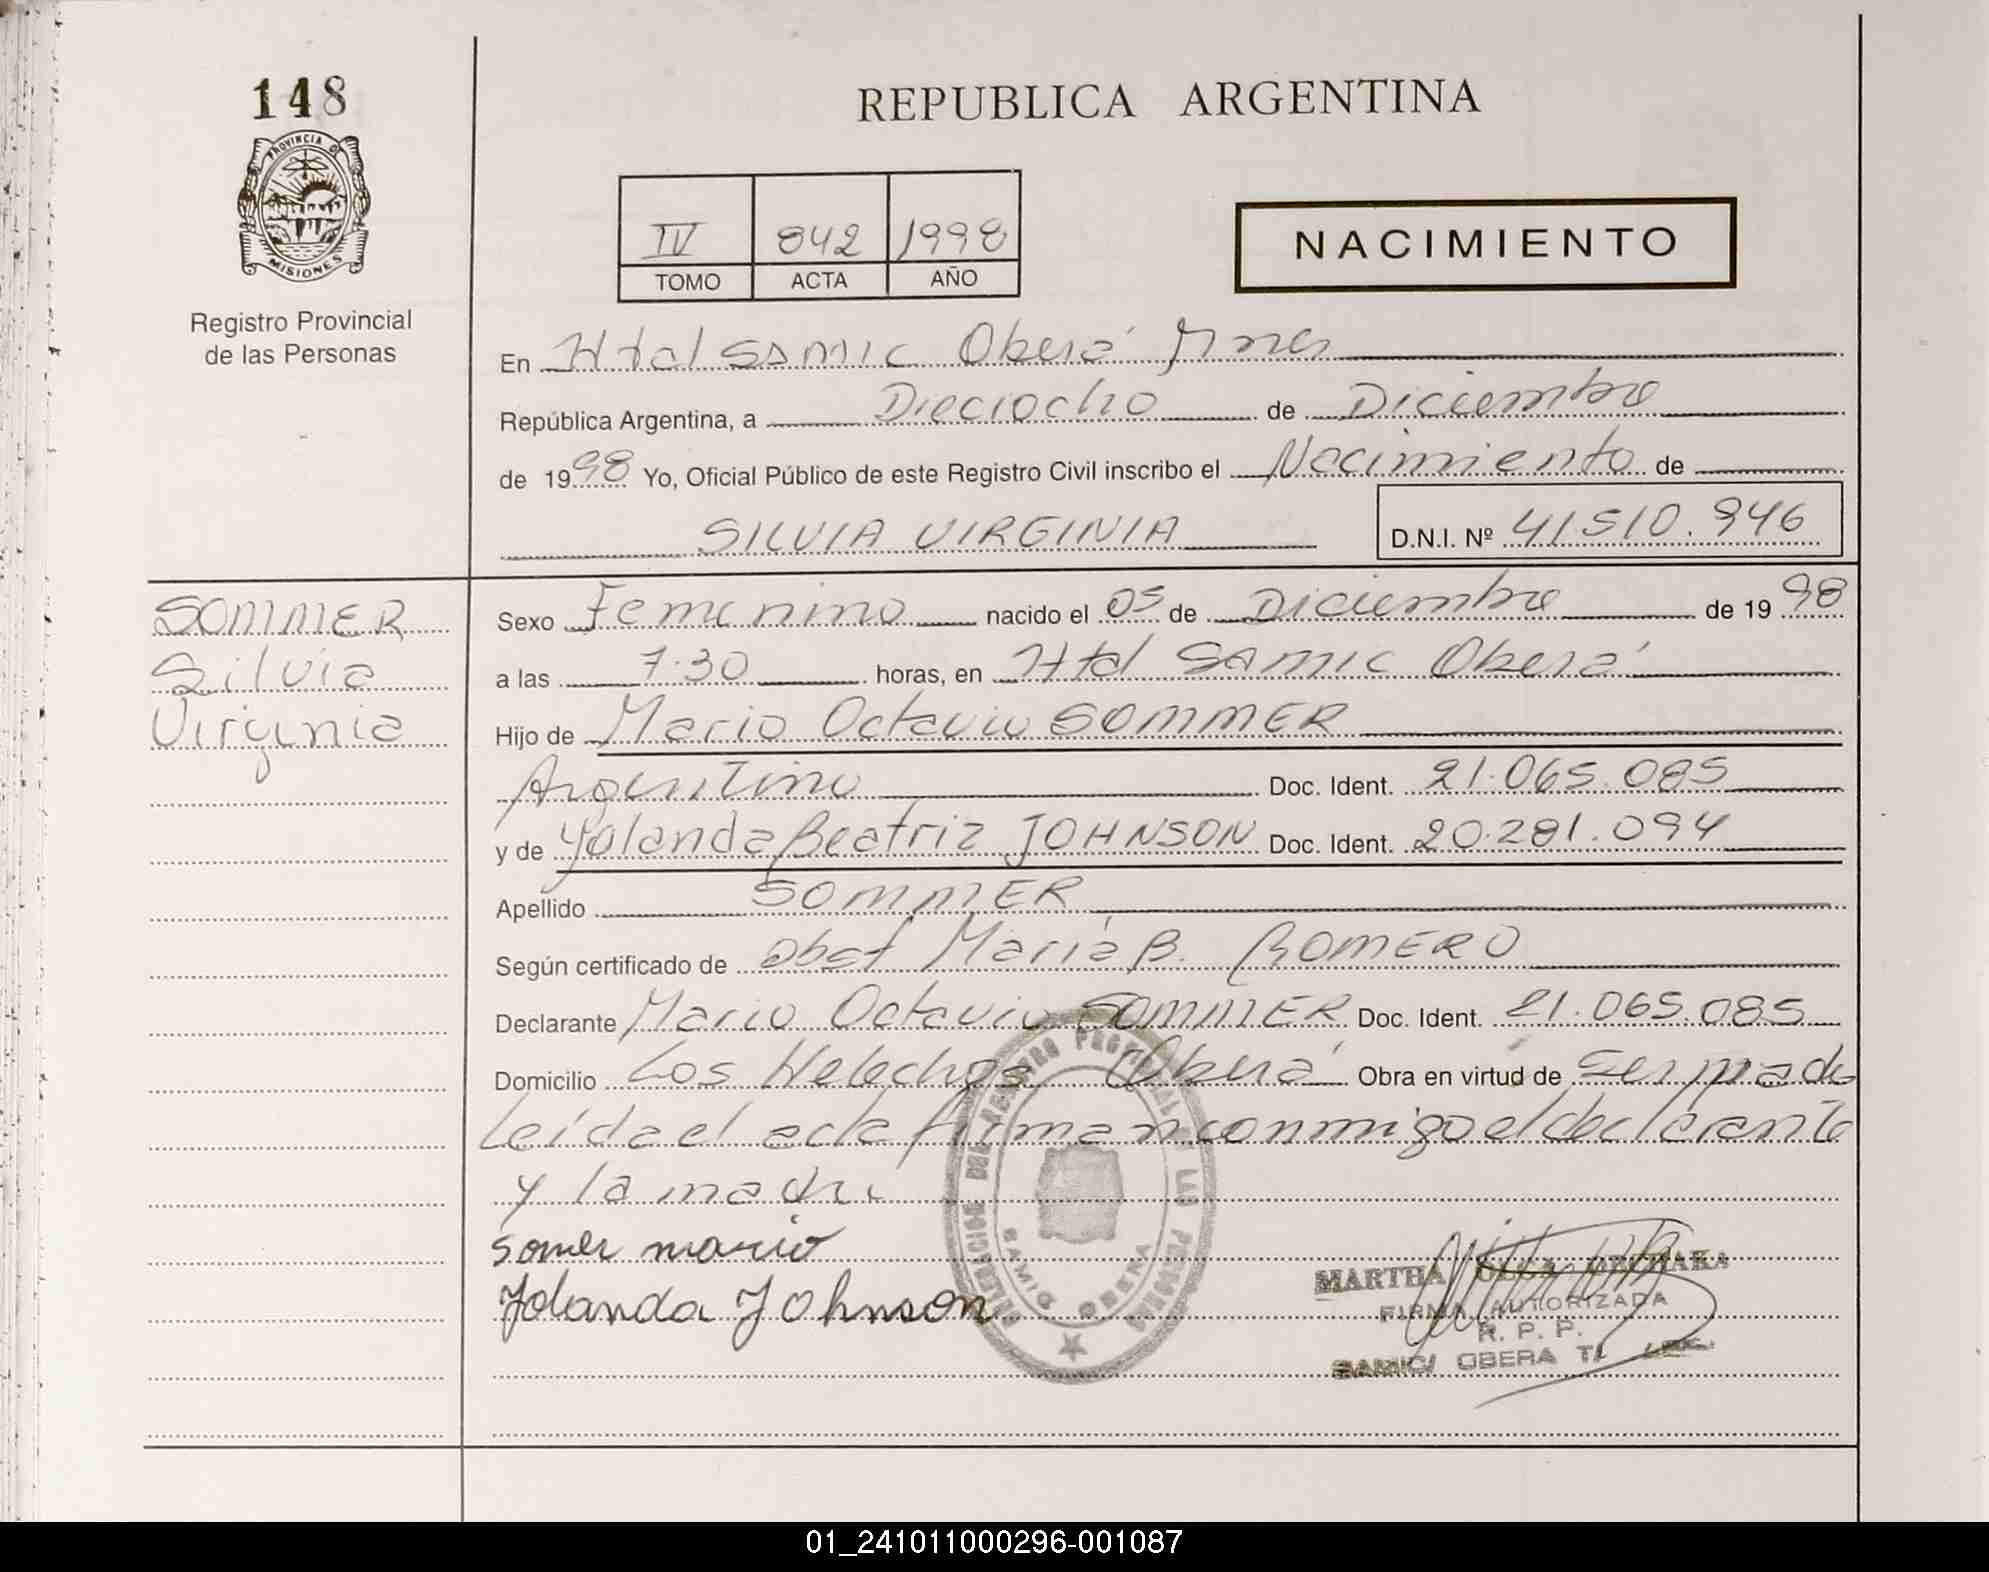 148
PROVINCIA DE
MISIONES
Registro Provincial
de las Personas
REPUBLICA ARGENTINA
IV 842 1998
TOMO ACTA AÑO
NACIMIENTO
En Htal SAMIC Oberá Mnes
República Argentina, a Dieciocho de Diciembre
de 1998 Yo, Oficial Público de este Registro Civil inscribo el Nacimiento de
SILVIA VIRGINIA D.N.I. Nº 41510.946
SOMMER
Silvia
Virginia
Sexo Femenino nacido el 05 de Diciembre de 1998
a las 7.30 horas, en Htal SAMIC Oberá
Hijo de Mario Octavio SOMMER
Argentino Doc. Ident. 21.065.085
y de Yolanda Beatriz JOHNSON Doc. Ident. 20.281.094
Apellido SOMMER
Según certificado de Obst María B. ROMERO
Declarante Mario Octavio SOMMER Doc. Ident. 21.065.085
Domicilio Los Helechos Oberá Obra en virtud de ser padre
Leída el acta firman conmigo el declarante
y la madre
Somer mario
Yolanda Johnson
MARTHA OLGA
FIRMA AUTORIZADA
R. P. P.
SAMIC OBERA
01_241011000296-001087